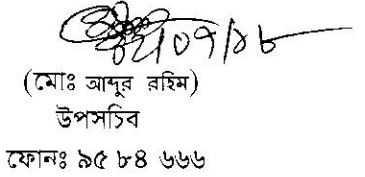 ০২/০৭/১৮
(মোঃ আব্দুর রহিম)
উপসচিব
ফোনঃ ৯৫ ৮৪ ৬৬৬